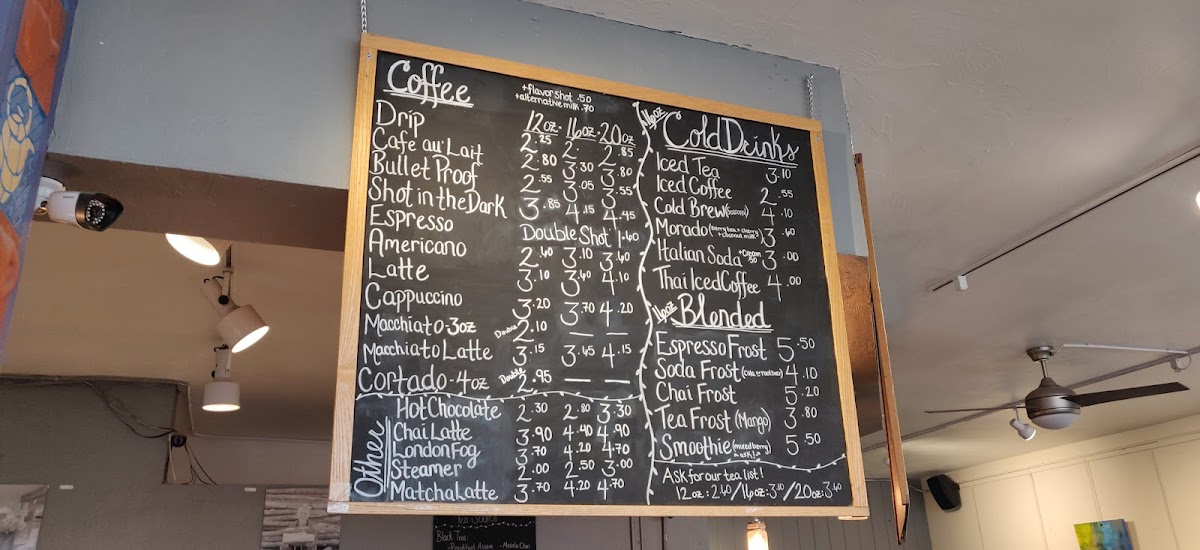 Coffee
+flavor shot .50
+alternative milk .70
12oz. 16oz. 20oz
Drip 2.25 2. 2.85
Cafe au' Lait 2.80 3.30 3.80
Bullet Proof 2.55 3.05 3.55
Shot in the Dark 3.85 4.15 4.45
Espresso Double Shot 1.60
Americano 2.60 3.10 3.60
Latte 3.10 3.60 4.10
Cappuccino 3.20 3.70 4.20
Macchiato-3oz Double 2.10 — —
Macchiato Latte 3.15 3.65 4.15
Cortado-4oz Double 2.95 — —
Other
Hot Chocolate 2.30 2.80 3.30
Chai Latte 3.90 4.40 4.90
London Fog 3.70 4.20 4.70
Steamer 2.00 2.50 3.00
Matcha Latte 3.70 4.20 4.70
16oz Cold Drinks
Iced Tea 3.10
Iced Coffee 2.55
Cold Brew (Seasons) 4.10
Morado (berry tea + cherry + coconut milk) 3.60
Italian Soda +Cream .50 3.00
Thai Iced Coffee 4.00
16oz Blended
Espresso Frost 5.50
Soda Frost (Cola or root beer) 4.10
Chai Frost 5.20
Tea Frost (Mango) 3.80
Smoothie (mixed berry ask!) 5.50
Ask for our tea list!
12oz: 2.60 / 16oz: 3.10 / 20oz: 3.60
Tea Source
Black Teas
-Breakfast Assam -Masala Chai